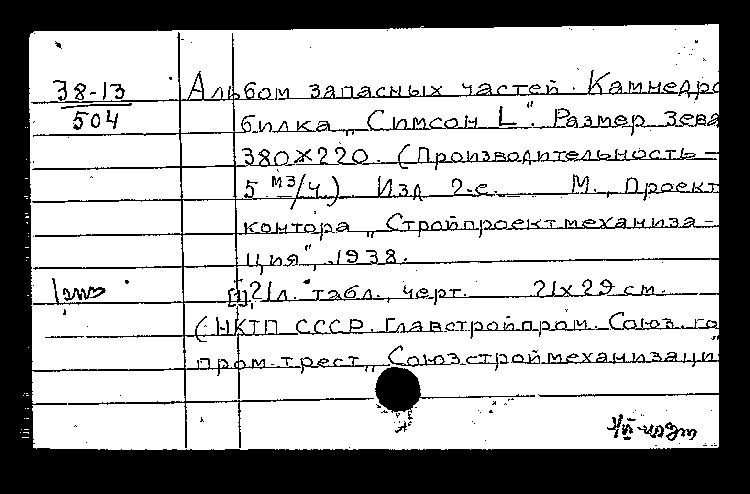 38-13
504
Альбом запасных частей. Камнедро
билка „Симсон L". Размер зева
380×220. (Производительность –
5 м3/ч.) Изд 2-е. М., Проект
контора „Стройпроектмеханиза-
ция", 1938.
[1], 21 л. табл., черт. 21х29 см.
(НКТП СССР. Главстройпром. Союз. го
пром. трест „Союзстроймеханизаци"